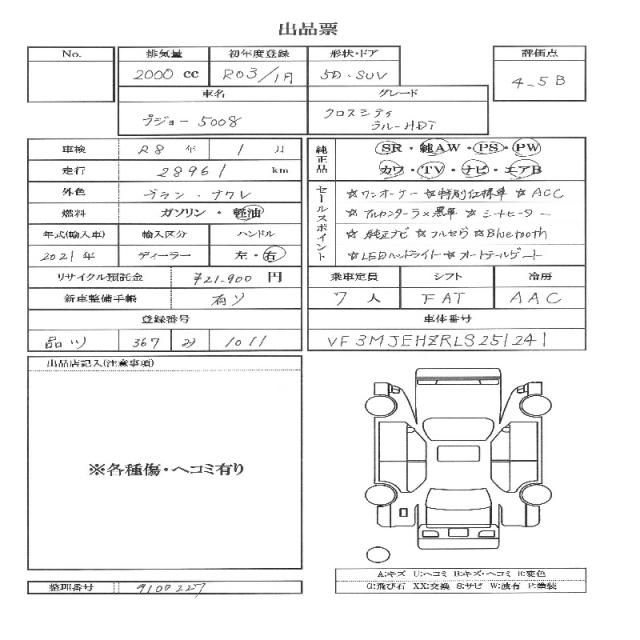 出品票
No. 排気量 初年度登録 形状・ドア 評価点
2000 cc R03/1月 5D・SUV 4.5B
車名 グレード
プジョー 5008 クロスシティ
ブルーHDI
車検 R8 年 1 月
走行 28961 km
外色
燃料 ガソリン・軽油
年式(輸入車) 輸入区分 ハンドル
2021年 ディーラー 左・右
リサイクル預託金 ¥21,900 円
新車整備手帳 有り
登録番号
品川 367 り 1011
純正品
SR・純AW・PS・PW
カワ・TV・ナビ・エアB
セールスポイント
☆ワンオーナー ☆特別仕様車 ☆ACC
☆アルカンターラ×黒革 ☆シートヒーター
☆純正ナビ ☆フルセグ ☆Bluetooth
☆LEDヘッドライト ☆オートテールゲート
乗車定員 シフト 冷房
7 人 FAT AAC
車体番号
VF3MJEHZRLS251241
出品店記入(注意事項)
※各種傷・ヘコミ有り
整理番号 9100227
A:キズ U:ヘコミ B:キズ・ヘコミ C:変色
G:飛び石 XX:交換 S:サビ W:波有 P:塗装